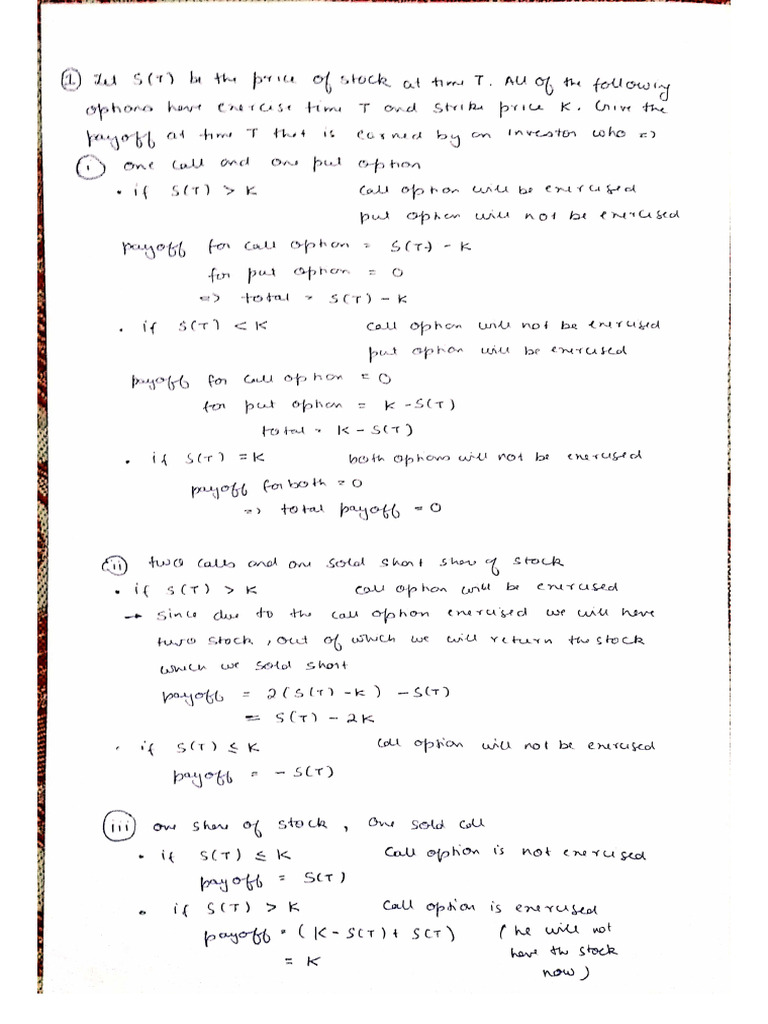 ① Let S(T) be the price of stock at time T. All of the following
options have exercise time T and strike price K. Give the
payoff at time T that is earned by an investor who =>
(i) one call and one put option
• if S(T) > K call option will be exercised
put option will not be exercised
payoff for call option = S(T) - K
for put option = 0
=> total = S(T) - K
• if S(T) < K call option will not be exercised
put option will be exercised
payoff for call option = 0
for put option = K - S(T)
total = K - S(T)
• if S(T) = K both options will not be exercised
payoff for both = 0
=> total payoff = 0
(ii) two calls and one sold short share of stock
• if S(T) > K call option will be exercised
→ Since due to the call option exercised we will have
two stock, out of which we will return the stock
which we sold short
payoff = 2(S(T) - K) - S(T)
= S(T) - 2K
• if S(T) ≤ K call option will not be exercised
payoff = - S(T)
(iii) one share of stock, one sold call
• if S(T) ≤ K call option is not exercised
payoff = S(T)
• if S(T) > K call option is exercised
payoff = (K - S(T) + S(T) (he will not
= K have the stock
now)